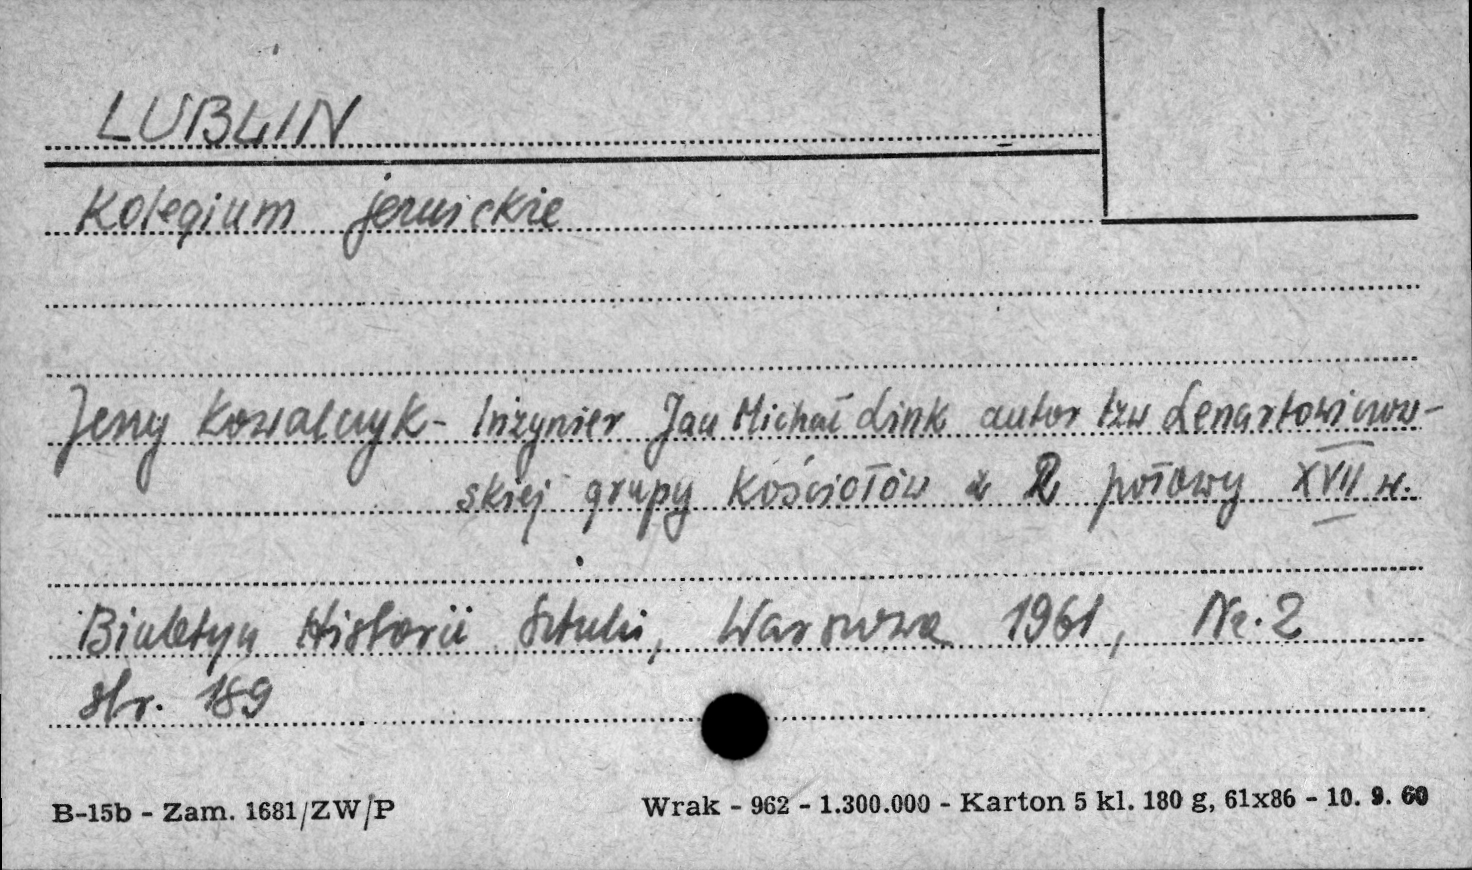 LUBLIN
Kolegium jezuickie
Jerzy Kowalczyk - Inżynier Jan Michał Link autor tzw Lenartowiczow-
skiej grupy kościołów z 2 połowy XVII w.
Biuletyn Historii Sztuki, Warszawa 1961, Nr. 2
str. 189
B-15b - Zam. 1681/ZW/P
Wrak - 962 - 1.300.000 - Karton 5 kl. 180 g, 61x86 - 10. 9. 60